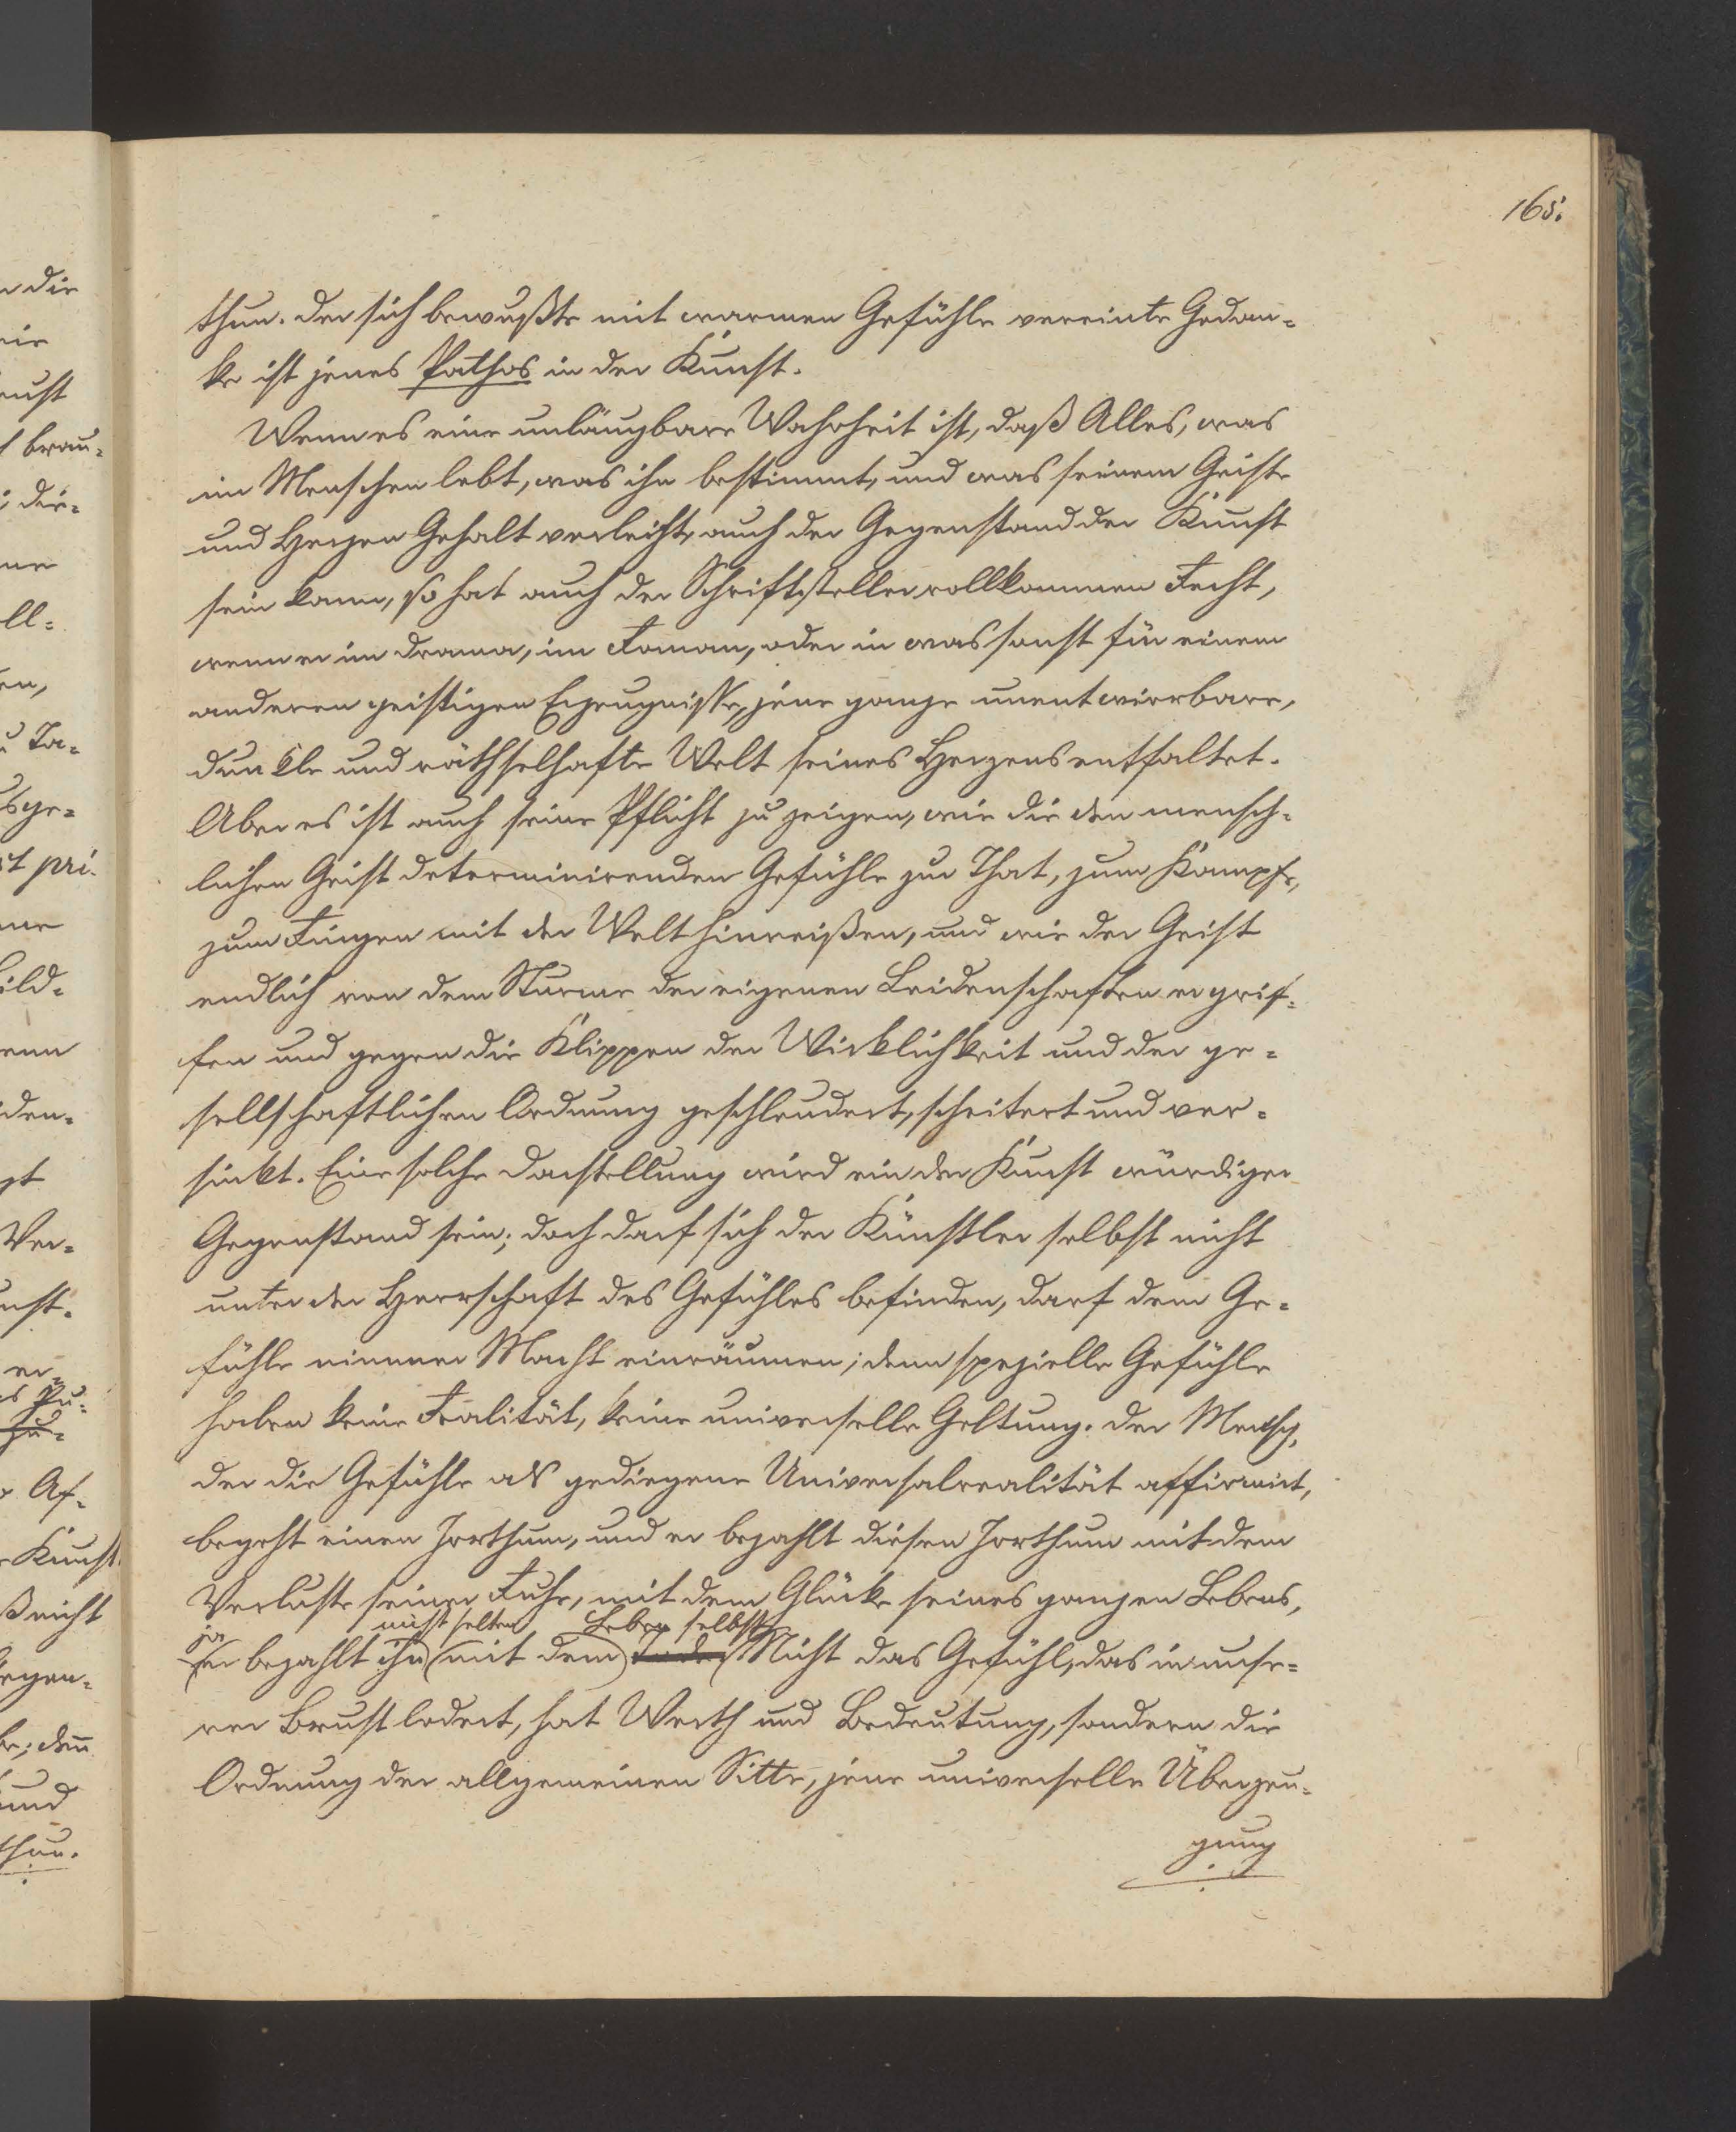 165.
thun. Der sich bewußte mit warmen Gefühle vereinte Gedan-
ke ist jenes Pathos in der Kunst.
Wenn es eine unläugbare Wahrheit ist, daß Alles, was
im Menschen lebt, was ihn bestimmt, und was seinem Geiste
und Herzen Gehalt verleiht, auch der Gegenstand der Kunst
sein kann, so hat auch der Schriftsteller vollkommen Recht,
wenn er im Drama, im Roman, oder in was sonst für einem
anderen geistigen Erzeugnisse, jene ganze unentwirrbare,
dunkle und räthselhafte Welt seines Herzens entfaltet.
Aber es ist auch seine Pflicht zu zeigen, wie die den mensch-
lichen Geist determinirenden Gefühle zur That, zum Kampfe,
zum Ringen mit der Welt hinreißen, und wie der Geist
endlich von dem Sturme der eigenen Leidenschaften ergrif-
fen und gegen die Klippen der Wirklichkeit und der ge-
sellschaftlichen Ordnung geschleudert, scheitert und ver-
sinkt. Eine solche Darstellung wird ein der Kunst würdiger
Gegenstand sein; doch darf sich der Künstler selbst nicht
unter der Herrschaft des Gefühles befinden, darf dem Ge-
fühle nimmer Macht einräumen; denn spezielle Gefühle
haben keine Realität, keine universelle Geltung. Der Mensch,
der die Gefühle als gediegene Universalrealität affirmirt,
begeht einen Irrthum, und er bezahlt diesen Irrthum mit dem
Verluste seiner Ruhe, mit dem Glücke seines ganzen Lebens,
ja nicht selten Leben selbst
er bezahlt ihn (mit dem) Tode. Nicht das Gefühl, das in unse-
rer Brust lodert, hat Werth und Bedeutung, sondern die
Ordnung der allgemeinen Sitte, jene universelle Überzeu-
gung